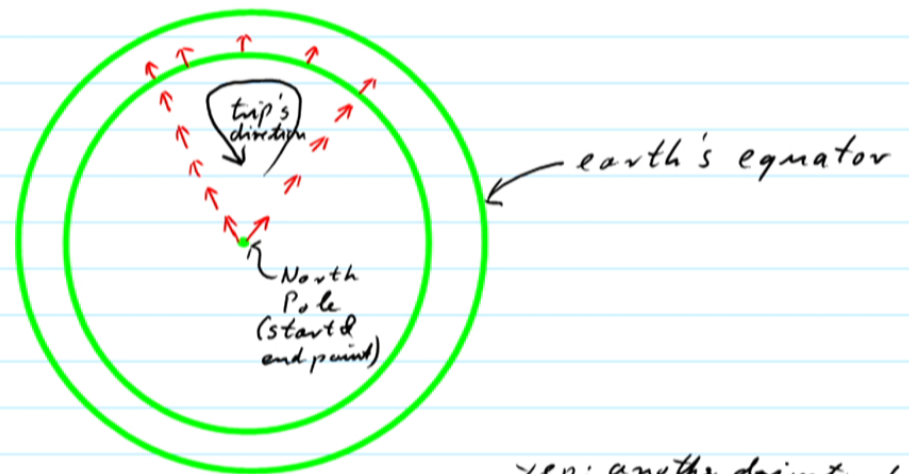 trip's
direction
earth's equator
North
Pole
(start &
end point)